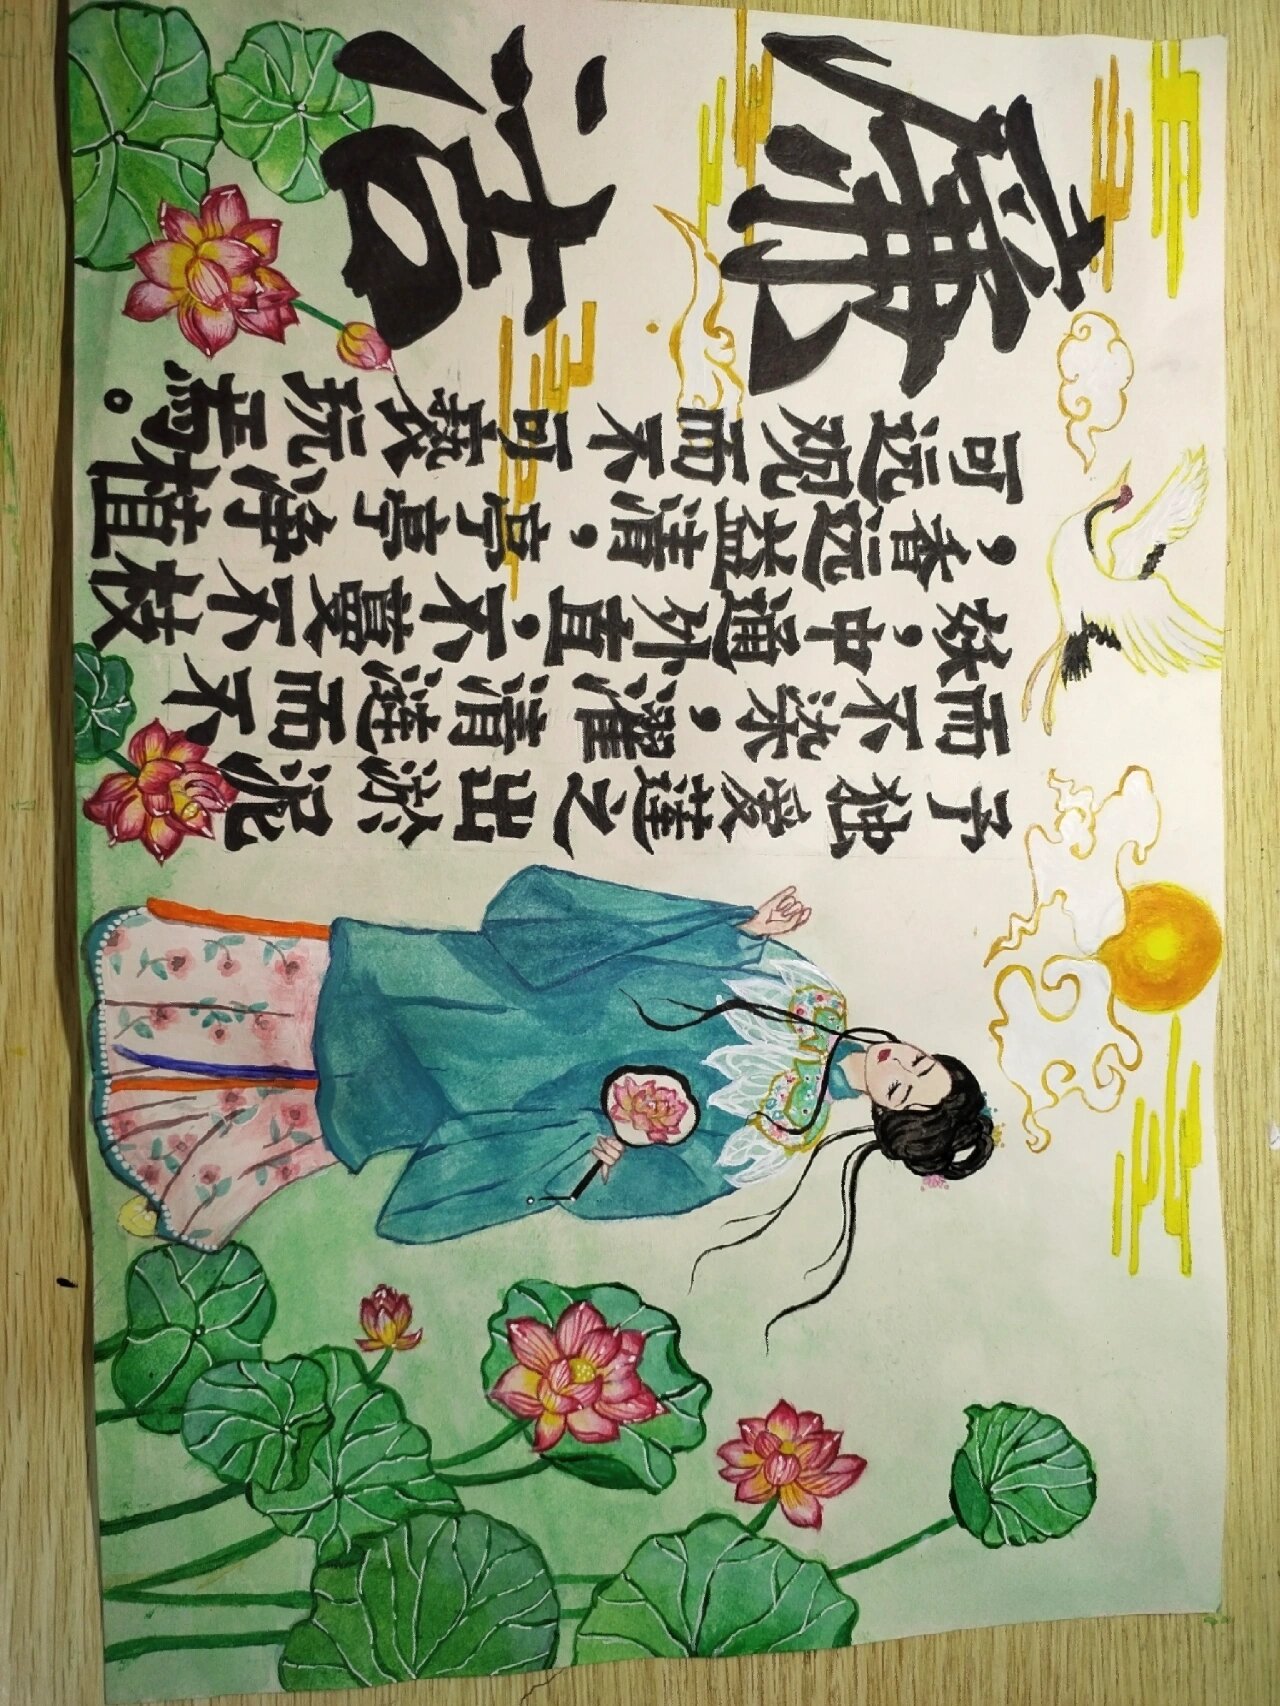 廉洁
予独爱莲之出淤泥
而不染，濯清涟而不
妖，中通外直，不蔓不枝
，香远益清，亭亭净植
可远观而不可亵玩焉。